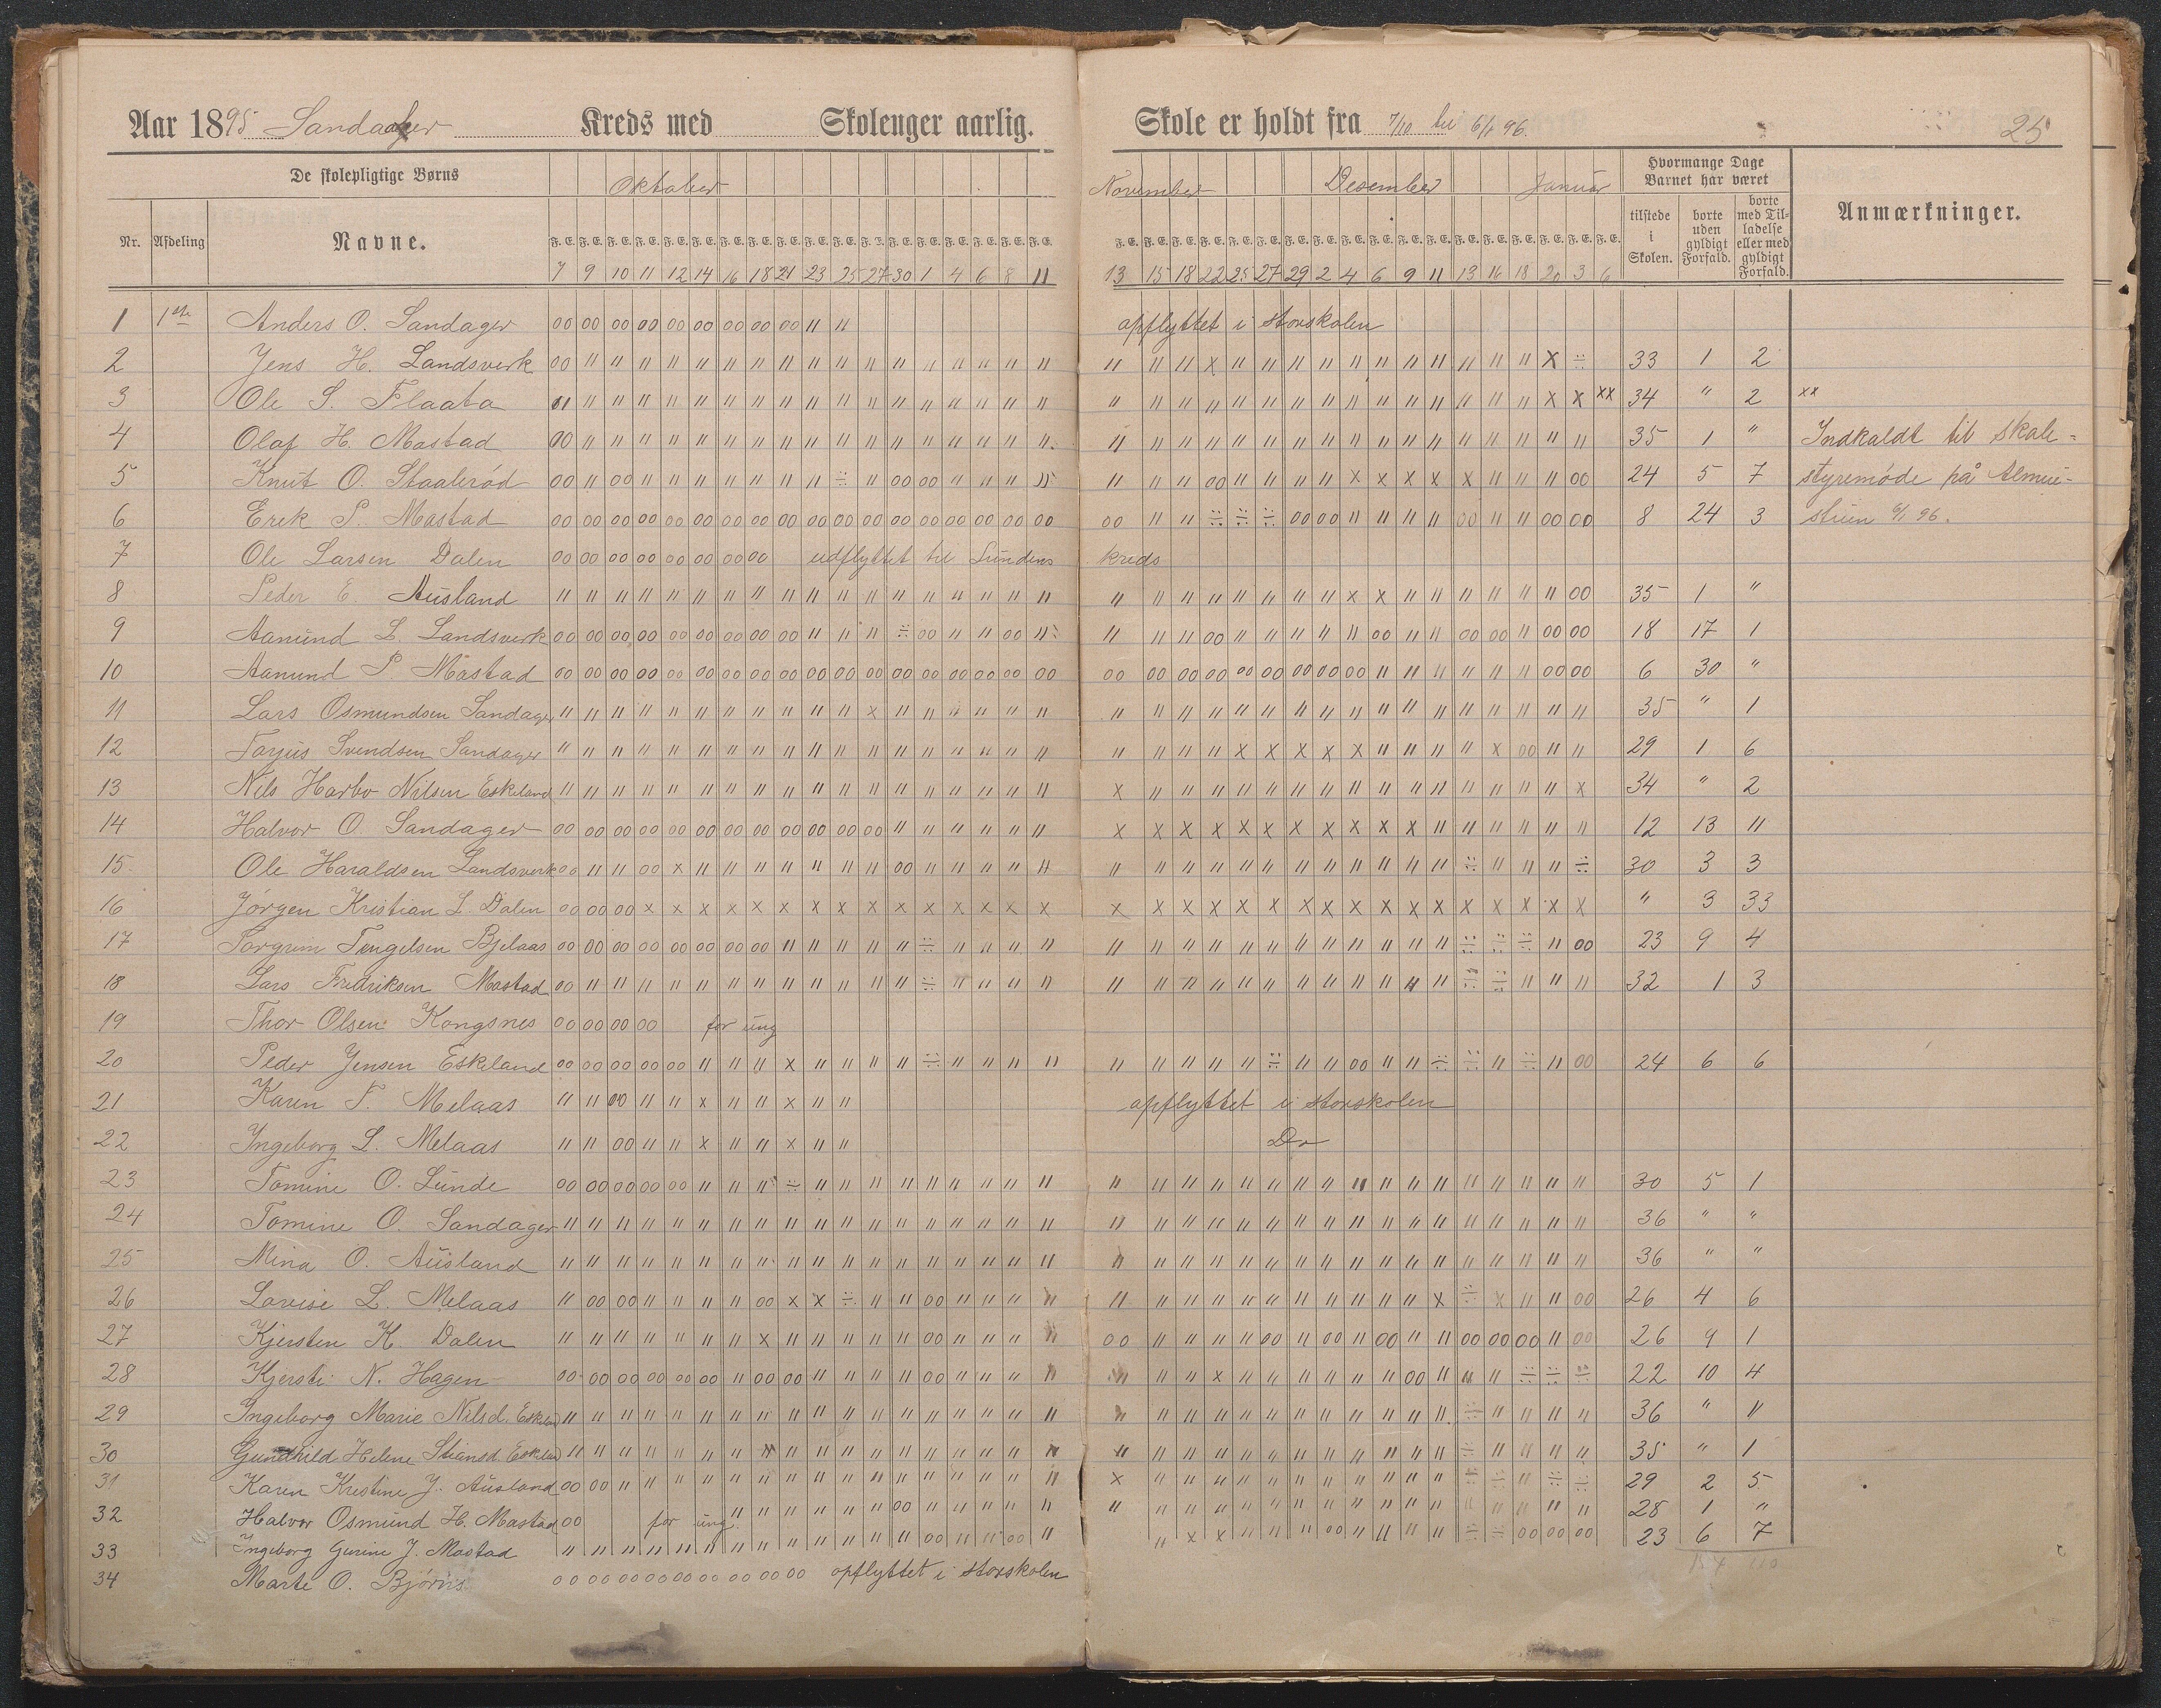 Aar 1895 Sandager Kreds med Skolenger aarlig. Skole er holdt fra 7/10 til 6/1 96. 25
De skolepligtige Børns Oktober November Desember Januar Hvormange Dage Barnet har været
Nr. Afdeling Navne. F. E. F. E. F. E. F. E. F. E. F. E. F. E. F. E. F. E. F. E. F. E. F. E. F. E. F. E. F. E. F. E. F. E. F. E. tilstede i Skolen. borte uden gyldigt Forfald. borte med Tilladelse eller med gyldigt Forfald. Anmærkninger.
7 9 10 11 12 14 16 18 21 23 25 27 30 1 4 6 8 11 13 15 18 22 25 27 29 2 4 6 9 11 13 16 18 20 3 6
1 1ste Anders O. Sandager 00 00 00 00 00 00 00 00 00 " " opflyttet i storskolen
2 Jens H. Landsverk 33 1 2
3 Ole S. Flaata 34 " 2 xx
4 Olaf H. Mostad 35 1 " Indkaldt til skole-
5 Knut O. Staalerød 24 5 7 styremøde på
6 Erek P. Mostad 8 24 3 6/1 96.
7 Ole Larsen Dalen 00 00 00 00 00 00 00 00 udflyttet til Lundens kreds
8 Peder E. Ausland 35 1 "
9 Aanund L. Landsverk 18 17 1
10 Aanund P. Mostad 6 30 "
11 Lars Osmundsen Sandager 35 " 1
12 Torjus Svendsen Sandager 29 1 6
13 Nils Harbo Nilsen Eskeland 34 " 2
14 Halvor O. Sandager 12 13 11
15 Ole Haraldsen Landsverk 30 3 3
16 Jörgen Kristian L. Dalen " 3 33
17 Torgrim Tengelsen Bjelaas 23 9 4
18 Lars Fredriksen Mostad 32 1 3
19 Thor Olsen Kongsnes 00 00 00 00 for ung
20 Peder Jensen Eskeland 24 6 6
21 Karen T. Melaas " " 00 " " x " " x " " opflyttet i storskolen
22 Ingeborg L. Melaas " " 00 " " x " " x " " Do
23 Tomine O. Lunde 30 5 1
24 Tomine O. Sandager 36 " "
25 Mina O. Ausland 36 " "
26 Lovise L. Melaas 26 4 6
27 Kjersten K. Dalen 26 9 1
28 Kjersti N. Hagen 22 10 4
29 Ingeborg Marie Nilsd. 36 " "
30 Gundhild Helene 35 " 1
31 Karen Kristine J. Ausland 29 2 5
32 Halvor Osmund H. Mostad 00 for ung 28 1 "
33 Ingeborg Gurine J. Mostad 23 6 7
34 Marte O. 00 00 00 00 00 00 00 00 00 opflyttet i storskolen